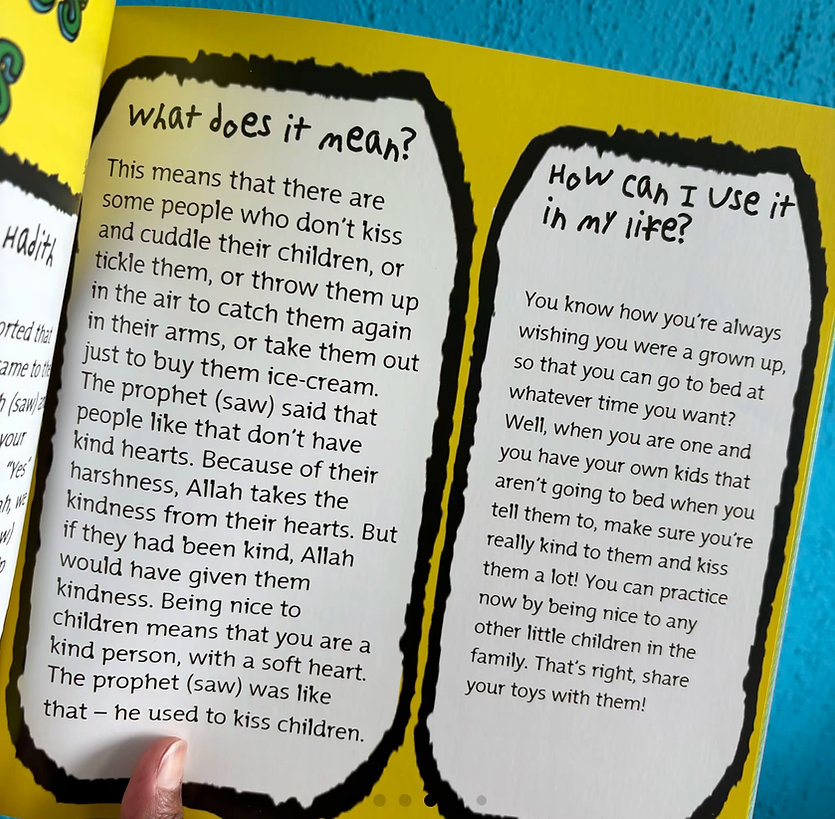 Hadith
orted that
ame to the
h (saw) a
your
"Yes"
ah, we
w)
What does it mean?
This means that there are
some people who don't kiss
and cuddle their children, or
tickle them, or throw them up
in the air to catch them again
in their arms, or take them out
just to buy them ice-cream.
The prophet (saw) said that
people like that don't have
kind hearts. Because of their
harshness, Allah takes the
kindness from their hearts. But
if they had been kind, Allah
would have given them
kindness. Being nice to
children means that you are a
kind person, with a soft heart.
The prophet (saw) was like
that – he used to kiss children.
How can I use it
in my life?
You know how you're always
wishing you were a grown up,
so that you can go to bed at
whatever time you want?
Well, when you are one and
you have your own kids that
aren't going to bed when you
tell them to, make sure you're
really kind to them and kiss
them a lot! You can practice
now by being nice to any
other little children in the
family. That's right, share
your toys with them!